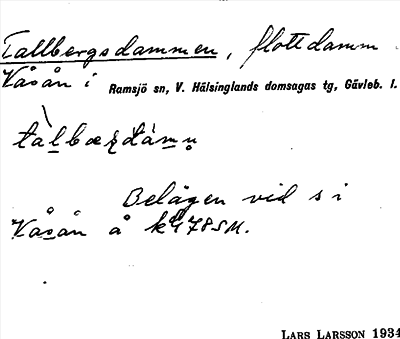 Tallbergsdammen, flottdamm
Våsån i Ramsjö sn, V. Hälsinglands domsagas tg, Gävleb. l.
Belägen vid s i
Våsån å
LARS LARSSON 1934